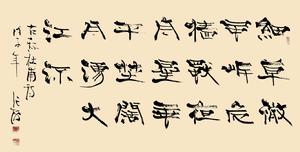 細草微
風岸危
檣獨夜
舟星垂
平埜闊
月湧大
江流
杜甫詩
戊子年